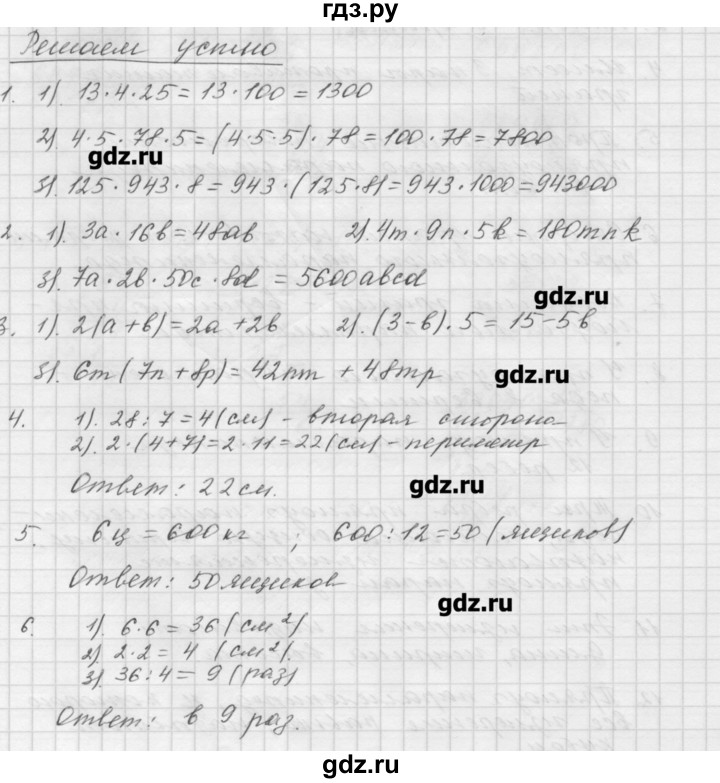 гдз.ру
Решаем устно
1. 1). 13·4·25=13·100=1300
2). 4·5·78·5=(4·5·5)·78=100·78=7800
gdz.ru
3). 125·943·8=943·(125·8)=943·1000=943000
2. 1). 3a·16b=48ab 2). 4m·9n·5k=180mnk
3). 7a·2b·50c·8d=5600abcd
gdz.ru
3. 1). 2(a+b)=2a+2b 2). (3-b)·5=15-5b
3). 6m(7n+8p)=42nm+48mp
gdz.ru
4. 1). 28:7=4(см) - вторая сторона
2). 2·(4+7)=2·11=22(см) - периметр
Ответ: 22см.
gdz.ru
5. 6ц=600кг ; 600:12=50(ящиков)
Ответ: 50 ящиков
gdz.ru
6. 1). 6·6=36(см²)
2). 2·2=4(см²).
3). 36:4=9(раз)
Ответ: в 9 раз.
gdz.ru